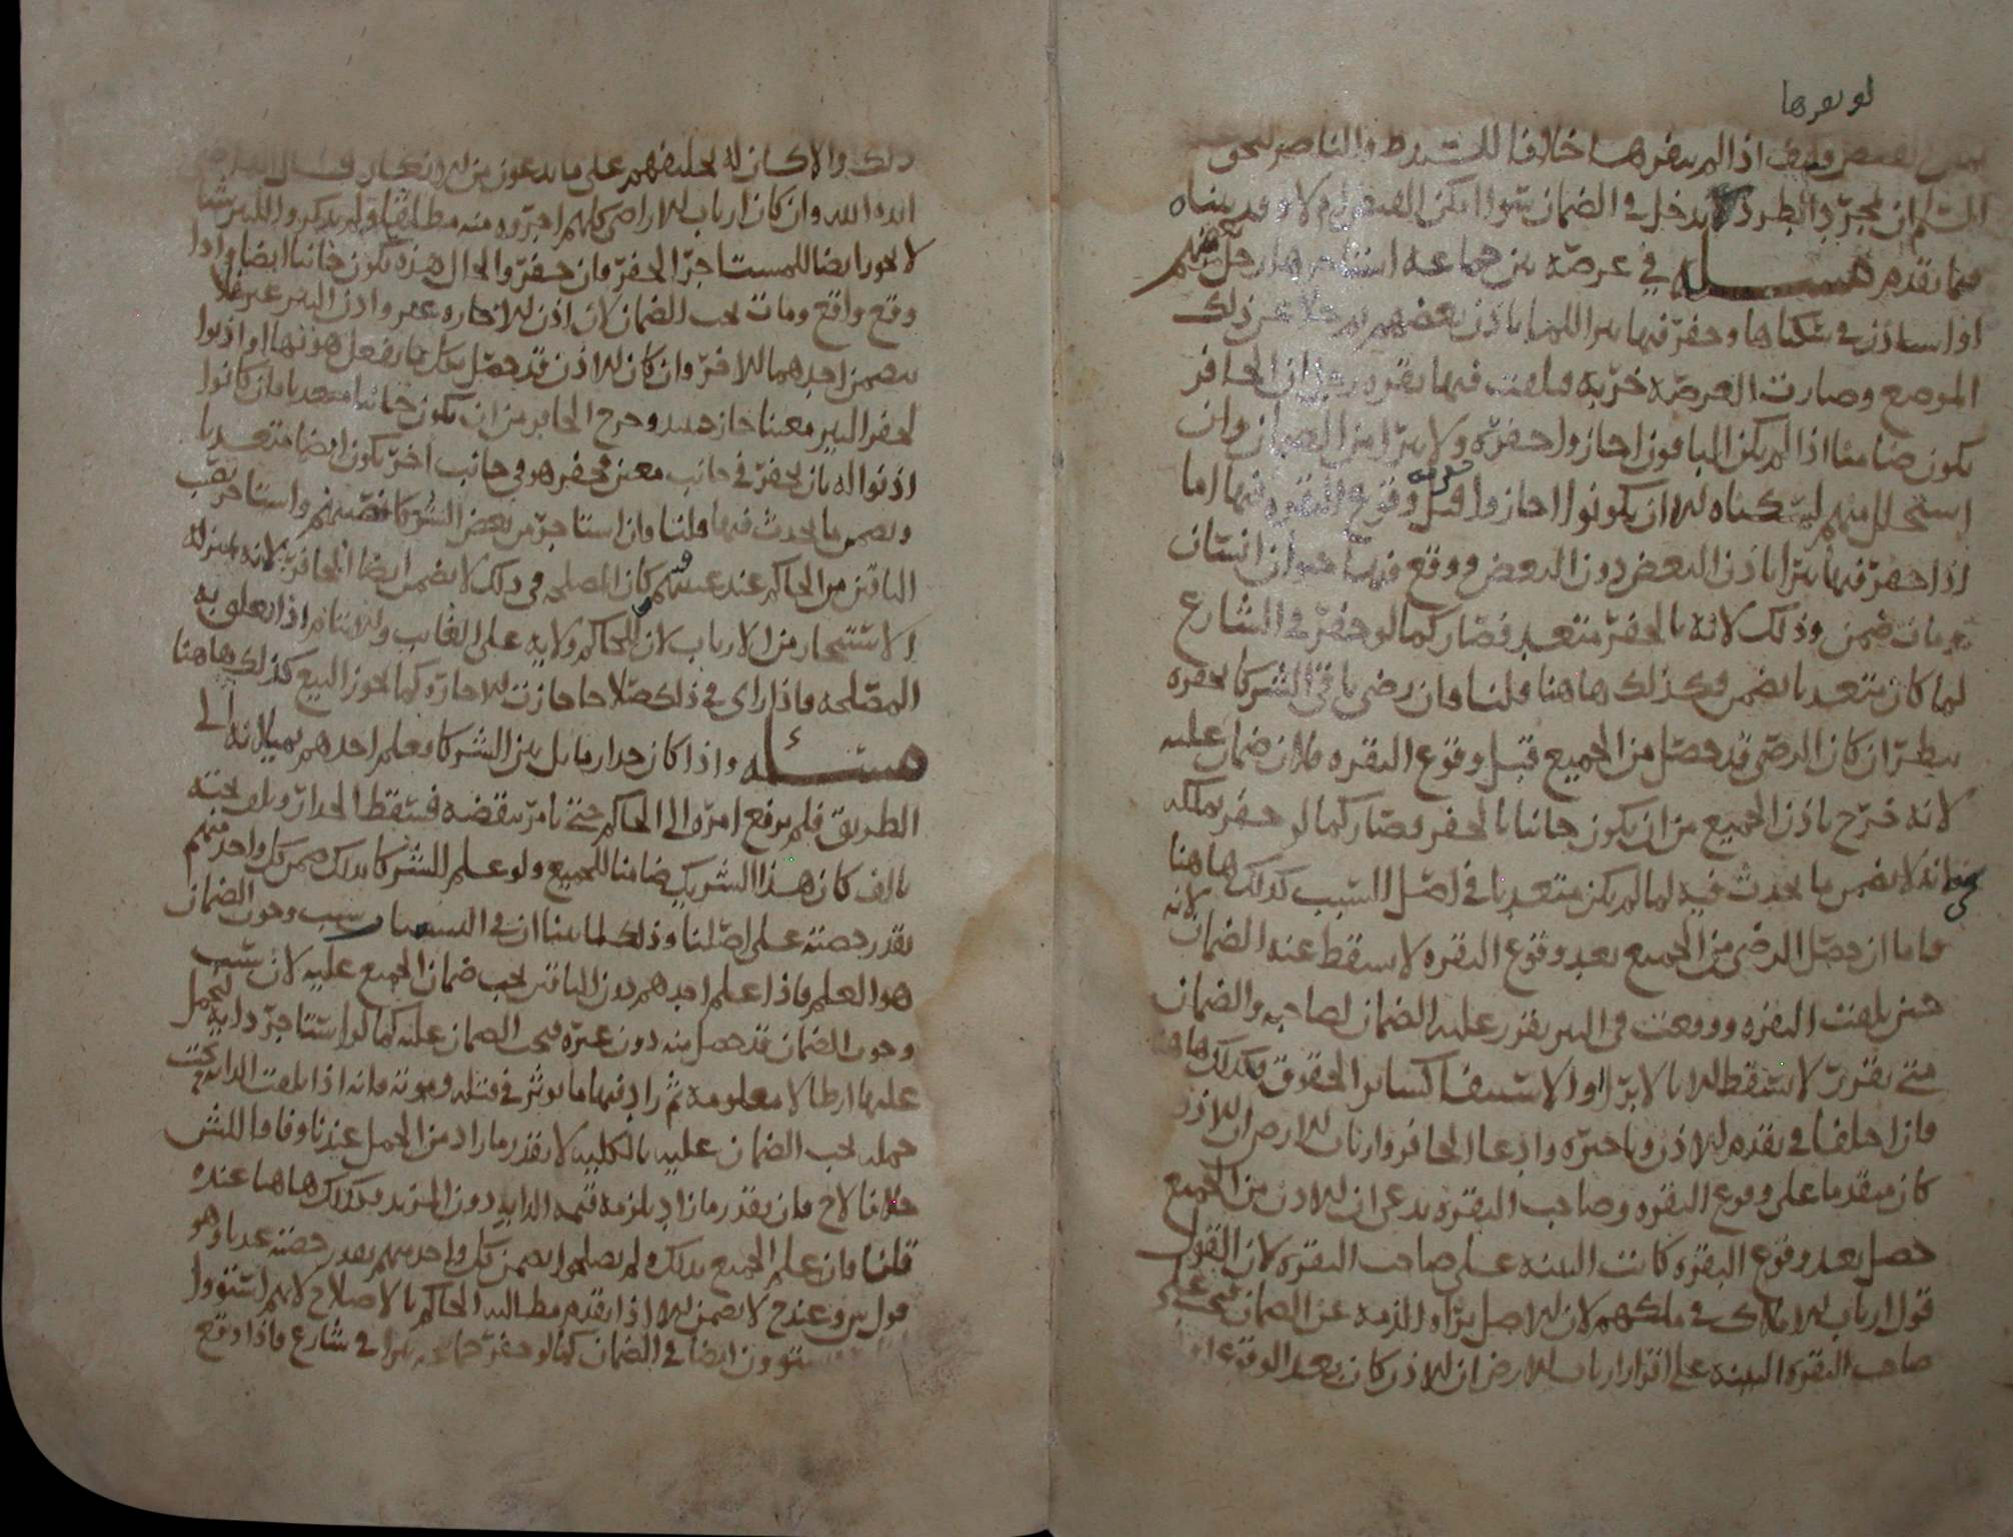 لو نفرها
اذا لم ينفرها خلافا للشيخ ط والناصر للحق
ان بمجرد الطرد لا يدخل في الضمان سواء امكن ام لا وقد بيناه
فيما تقدم مسئلة في عرصة بين جماعة استاجرها رجل منهم
او استاذن في سكناها وحفر فيها بيرا للماء باذن بعضهم ثم خلا عن ذلك
الموضع وصارت العرصة خربة فتلفت فيها بقرة رجل ان الحافر
يكون ضامنا اذا لم يكن الباقون اجازوا حفره ولا يبرا من الضمان وان
استحلل منهم لسكناه الا ان يكونوا اجازوا قبل وقوع البقرة فيها اما
اذا حفر فيها بيرا باذن البعض دون البعض ووقع فيها حيوان انسان
ومات ضمن وذلك لانه بالحفر متعد فصار كما لو حفر في الشارع
لما كان متعديا يضمن فكذلك هاهنا قلنا وان رضي باقي الشركا بحفره
ينظر ان كان الرضى قد حصل من الجميع قبل وقوع البقرة فلا ضمان عليه
لانه خرج باذن الجميع من ان يكون جانيا بالحفر فصار كما لو حفر بملكه
في انه لا يضمن ما يحدث فيه لما لم يكن متعديا في اصل السبب كذلك هاهنا
فاما ان حصل الرضى من الجميع بعد وقوع البقرة لا يسقط عنه الضمان لانه
حين تلفت البقرة ووقعت في البير تقرر عليه الضمان لصاحبه والضمان
متى تقرر لا يسقط الا بالابرا او الاستيفا كساير الحقوق فكذلك هاهنا
فان اختلفا في تقدم الاذن وتاخره وادعا الحافر وارباب الارض ان الاذن
كان متقدما على وقوع البقرة وصاحب البقرة يدعي ان الاذن من الجميع
حصل بعد وقوع البقرة كانت البينة على صاحب البقرة لان القول
قول ارباب الاملاك في ملكهم لان الاصل براة الذمة عن الضمان فعلى
صاحب البقرة البينة على اقرار ارباب الارض ان الاذن كان بعد الوقوع
ذلك والا كان له تحليفهم على ما يدعون من الانكار قال
ايده الله وان كان ارباب الاراضي كلهم اجروه منه مطلقا ولم يذكروا البير
لا يجوز ايضا للمستاجر الحفر فان حفر والحال هذه يكون جانيا ايضا واذا
وقع واقع ومات يجب الضمان لان اذن الاجارة غير واذن البير غير فلا
يتضمن احدهما الاخر وان كان الاذن قد حصل بكل ما يفعل هو فيها او اذنوا
لحفر البير معينا جاز حينئذ وخرج الحافر من ان يكون جانيا متعديا وان كانوا
اذنوا له بان يحفر في جانب معين فحفر هو في جانب اخر يكون ايضا متعديا
ويضمن ما يحدث فيها قلنا وان استاجر من بعض الشركا نصيبهم واستاجر نصيب
الباقين من الحاكم عند غيبتهم وكان المصلحة في ذلك لا يضمن ايضا الحافر لانه بمنزلة
الاستيجار من الارباب لان للحاكم ولاية على الغايب والايتام اذا تعلق به
المصلحة فاذا راى في ذلك صلاحا جازت الاجارة كما يجوز البيع كذلك هاهنا
مسئلة واذا كان جدار مايل بين الشركا فعلم احدهم بميلانه الى
الطريق فلم يرفع امره الى الحاكم حتى يامر بنقضه فسقط الجدار وتلف تحته
تالف كان هذا الشريك ضامنا للجميع ولو علم الشركا بذلك ضمن كل واحد منهم
بقدر حصته على اصلنا وذلك لما بينا ان في سبب وجوب الضمان
هو العلم فاذا علم احدهم دون الباقين يجب ضمان الجميع عليه لان سبب
وجوب الضمان قد حصل منه دون غيره فيجب الضمان عليه كما لو استاجر دابة ليحمل
عليها ارطالا معلومة ثم زاد فيها ما يوثر في قتله وموته فانه اذا تلفت الدابة تحت
حمله يجب الضمان عليه بالكلية لا بقدر ما زاد من الحمل عندنا وفاقا
خلافا لاح فان بقدر ما زاد يلزمه قيمة الدابة دون المزيد فكذلك هاهنا عنده
قلنا فان علم الجميع بذلك ولم يصلحوا يضمن كل واحد منهم بقدر حصته عندنا وهو
قول س وعند ح لا يضمن الا اذا تقدم مطالبة الحاكم بالاصلاح لانهم استووا
يستوون ايضا في الضمان كما لو حفر جماعة بيرا في شارع فاذا وقع